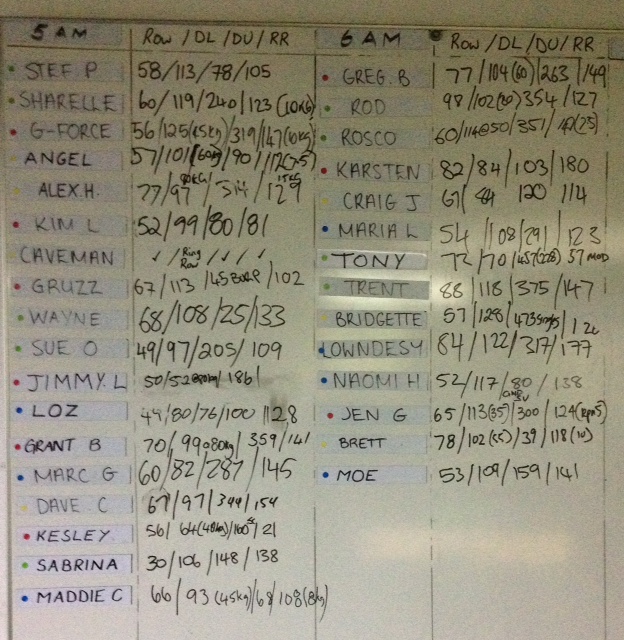 5 AM Row / DL / DU / RR
STEF P 58/113/78/105
SHARELLE 60/119/240/123 (10KG)
G-FORCE 56/125(45kg)/319/147(10kg)
ANGEL 57/101(60kg)/90/112(7.5)
ALEX.H. 77/97 80KG / 314 / 129 15KG
KIM L 52/99/80/81
CAVEMAN ✓ / Ring Row / ✓ / ✓ / ✓
GRUZZ 67/113 /145 BURP/102
WAYNE 68/108/25/133
SUE O 49/97/205/109
JIMMY. L 50/52@80kg/186/
LOZ 44/80/76/100 128
GRANT B 70/99@80kg/359/141
MARC G 60/82/287/145
DAVE C 67/97/344/154
KESLEY 56/64(40kg)/160 /21
SABRINA 30/106/148/138
MADDIE C 66/93(45kg)/68/108(8kg)
6 AM Row / DL / DU / RR
GREG. B 77/104(60)/263/149
ROD 98/102(60)354/127
ROSCO 60/114@50/351/
KARSTEN 82/84/103/180
CRAIG J 67/84 120 114
MARIA L 54/108/291/123
TONY 72/70/457 57 MOD
TRENT 88/118/375/147
BRIDGETTE 57/128/473
LOWNDESY 84/122/317/177
NAOMI H 52/117/80/138
JEN G 65/113(35)/300/124
BRETT 78/102(55)/39/118(10)
MOE 53/109/159/141